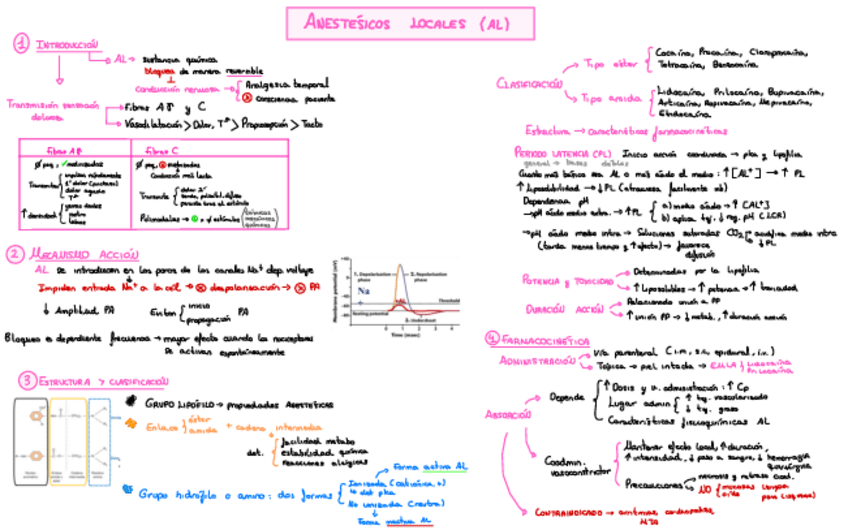 ANESTÉSICOS LOCALES (AL)
1 INTRODUCCIÓN
AL → sustancia química
bloquea de manera reversible
conducción nerviosa → Analgesia temporal
Consciencia paciente
Transmisión sensación
dolorosa
Fibras Aδ y C
Vasodilatación > Dolor, Tª > Propiocepción > Tacto
Fibras Aδ
Fibras C
Ø peq, ✓ mielinizadas
Ø peq, mielinizadas
Conducción más lenta
Transmiten
impulsos rápidamente
1º dolor (punzante)
dolor agudo
Tª
Transmite
dolor 2º
↑ densidad
yemas dedos
rostro
labios
Polimodales →
2 MECANISMO ACCIÓN
AL se introducen en los poros de los canales Na⁺ dep. voltaje
Impiden entrada Na⁺ a la cél → despolarización → PA
↓ Amplitud PA
Evitan
inicio
propagación
PA
Bloqueo es dependiente frecuencia → mayor efecto cuando los receptores
se activan espontáneamente
1. Depolarization
phase
2. Repolarization
phase
Na
Threshold
Resting potential
3. Undershoot
Membrane potential (mV)
Time (msec)
3 ESTRUCTURA Y CLASIFICACIÓN
GRUPO LIPÓFILO → propiedades ANESTÉSICAS
Enlace
éster
amida
+ cadena intermedia
det.
facilidad metabo
estabilidad química
reacciones alérgicas
Grupo hidrófilo o amino: dos formas
Forma activa AL
Ionizada (catiónica, +)
↳ det pka
No ionizada (neutra)
Forma inactiva AL
CLASIFICACIÓN
Tipo éster
Cocaína, Procaína, Cloroprocaína,
Tetracaína, Benzocaína
Tipo amida
Lidocaína, Prilocaína, Bupivacaína,
Articaína, Ropivacaína, Mepivacaína,
Etidocaína
Estructura → características farmacocinéticas
PERIODO LATENCIA (PL) Inicio acción condicionada → pka y lipofilia
general → bases débiles
Cuanto más básico sea AL o más ácido el medio: ↑[AL⁺] → ↑ PL
↑ Liposolubilidad → ↓PL (atraviesa fácilmente mb)
Dependencia pH
→pH ácido medio extra. → ↑PL
a) medio ácido → ↑ [AL⁺]
→pH ácido medio intra → Soluciones saturadas CO₂
acidifica medio intra
↓PL
(tarda menos tiempo y ↑efecto) → favorece
difusión
POTENCIA Y TOXICIDAD
Determinadas por la lipofilia
↑ liposolubles → ↑ potencia → ↑ toxicidad
DURACIÓN ACCIÓN
Relacionado unión a PP
↑ unión PP → ↓ metab, ↑ duración acción
4 FARMACOCINÉTICA
ADMINISTRACIÓN
Vía parenteral (i.m, s.c, epidural, i.v.)
Tópica → piel intacta → EMLA
Lidocaína
Prilocaína
ABSORCIÓN
Depende
↑ Dosis y v. administración: ↑ Cp
Lugar admin
↑ tej. vascularizado
↓ tej. graso
Características fisicoquímicas AL
Coadmin.
vasoconstrictor
Mantener efecto local, ↑ duración,
↑ intensidad, ↓ paso a sangre, ↓ hemorragia
quirúrgica
Precauciones
necrosis y retraso cicat.
NO
CONTRAINDICADO → arritmias cardiopatías
HTA